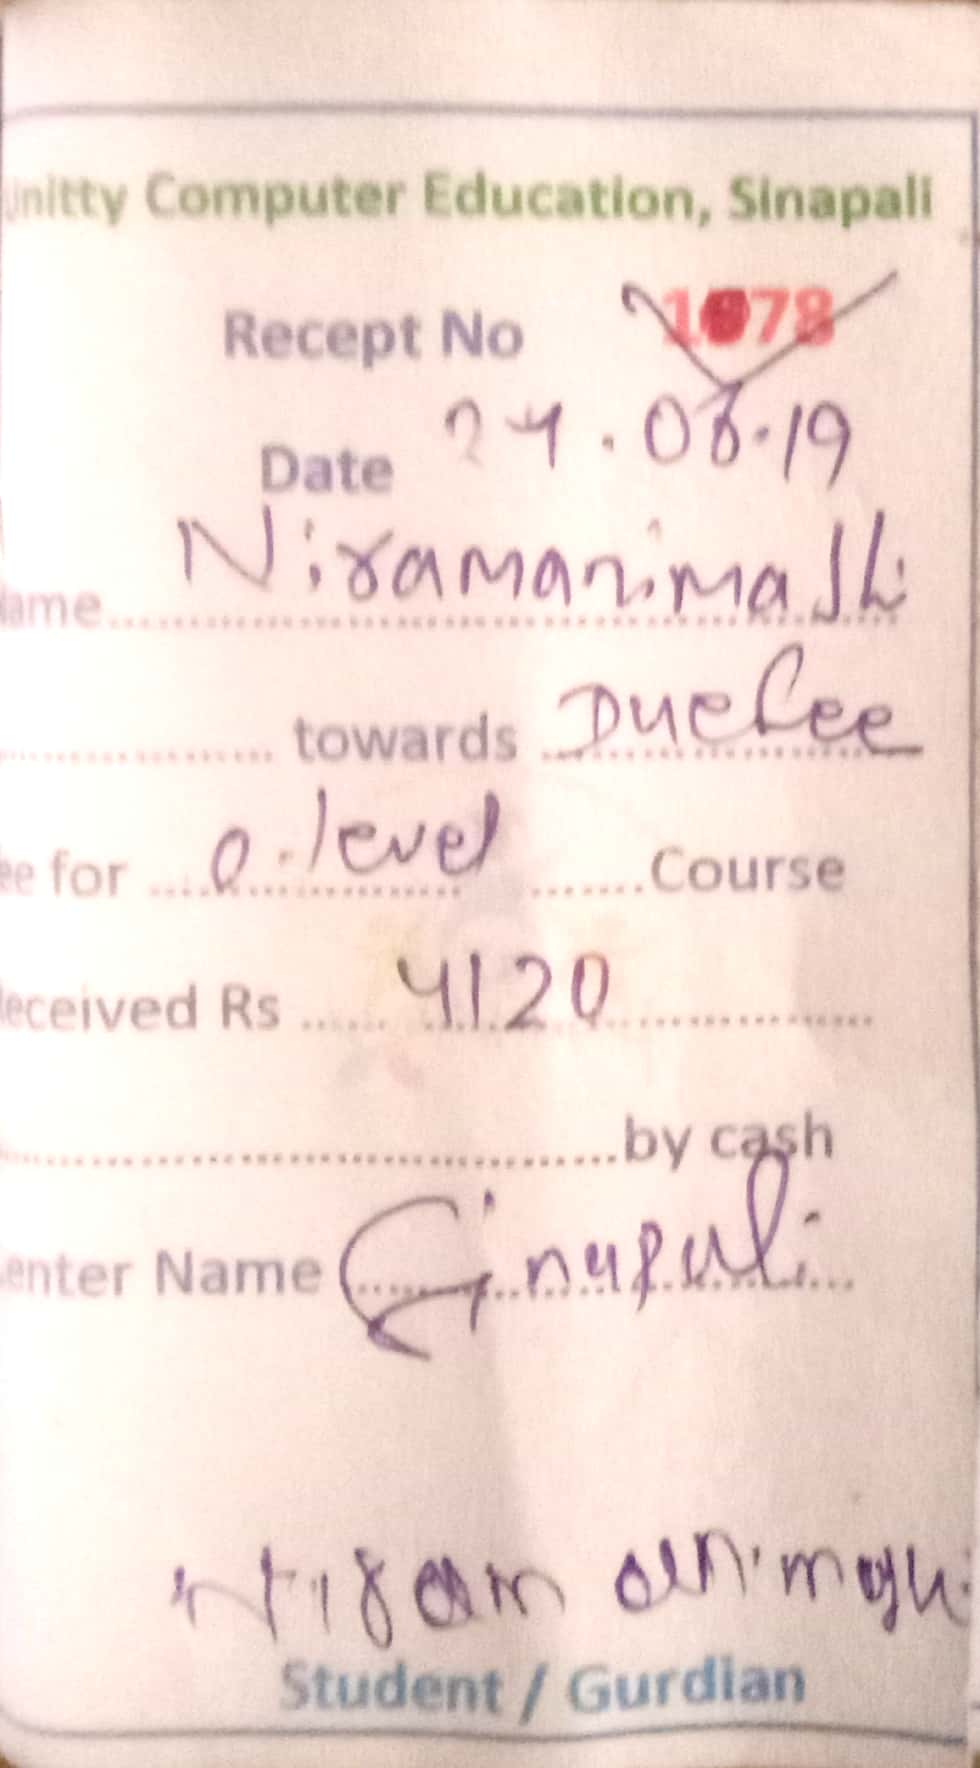 Unitty Computer Education, Sinapali
Recept No 1078
Date 24.08.19
Name Niramanimajhi
towards Due fee
ee for O-level Course
Received Rs 4120
by cash
Center Name Sinapali
Student / Gurdian